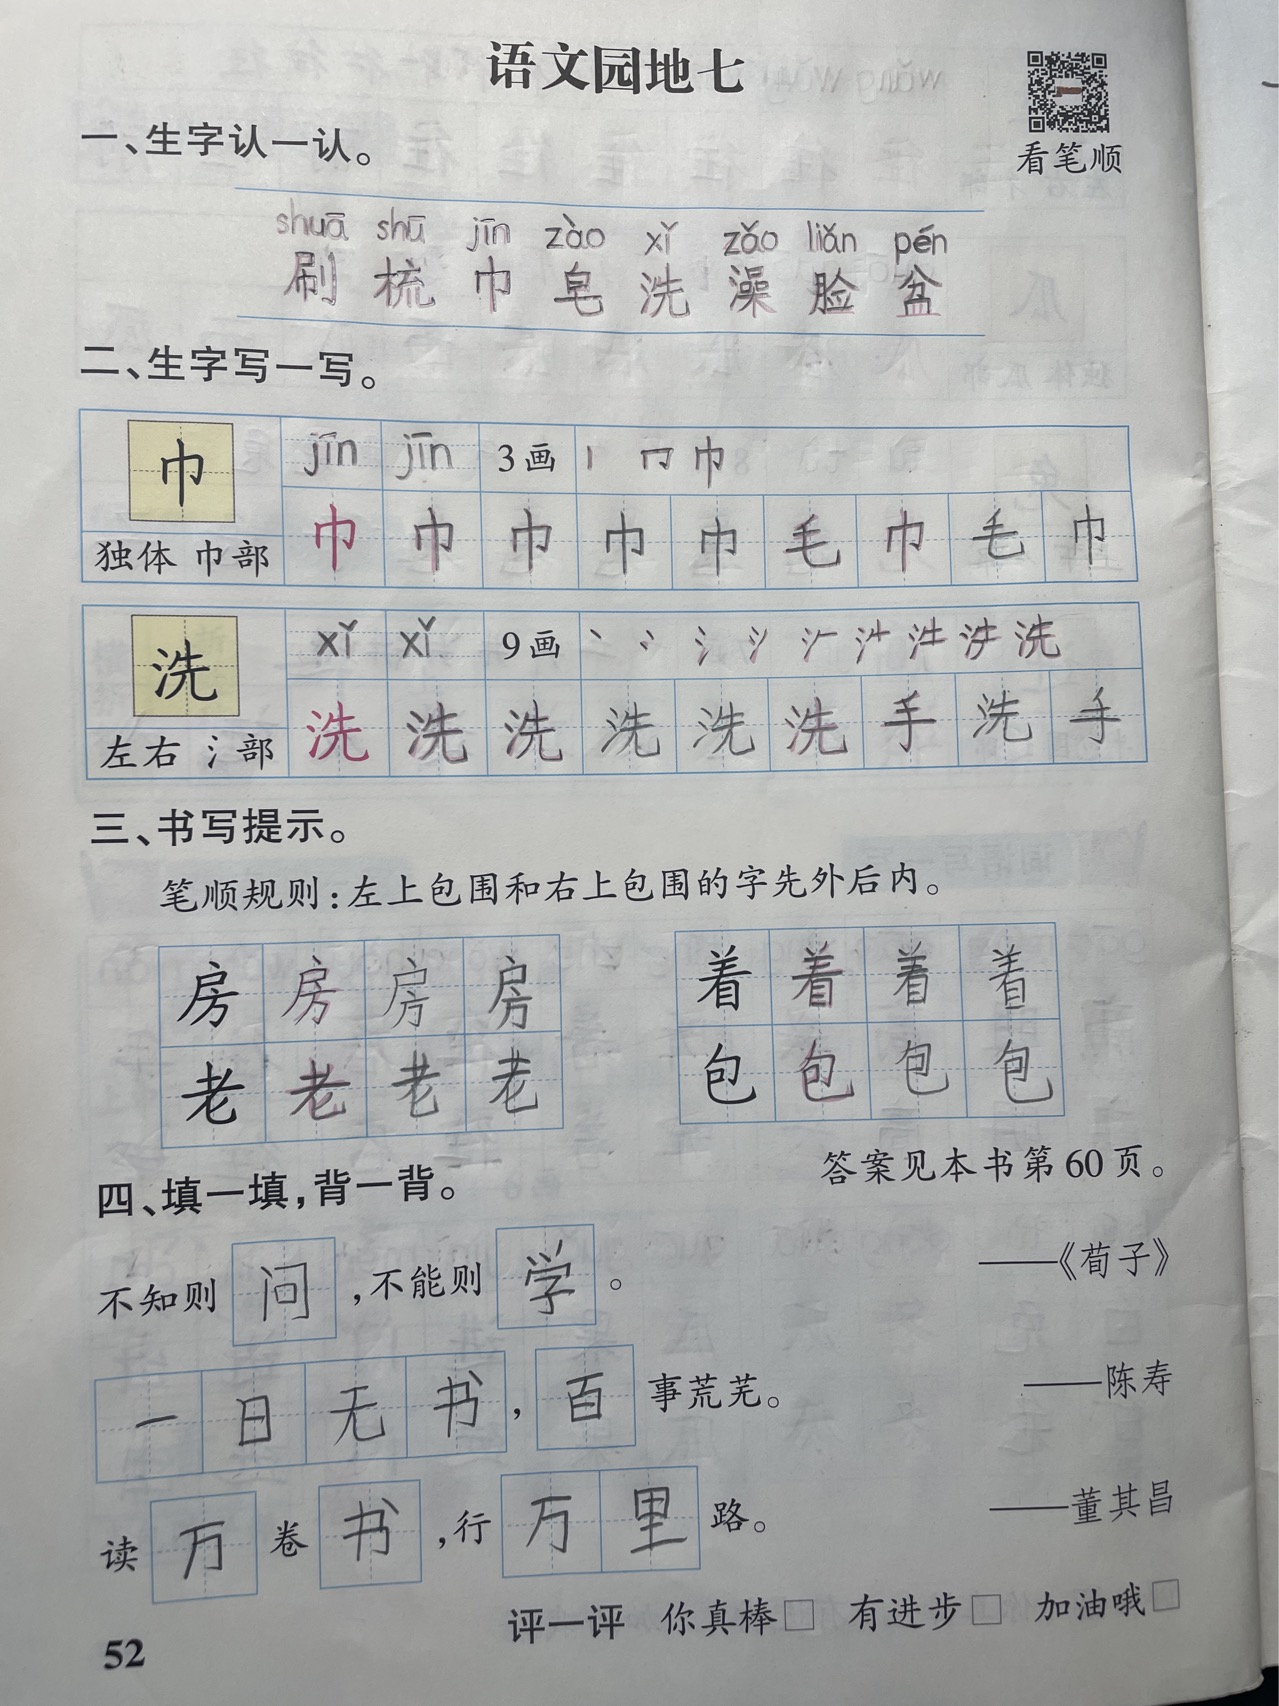 语文园地七
看笔顺
一、生字认一认。
shuā shū jīn zào xǐ zǎo liǎn pén
刷 梳 巾 皂 洗 澡 脸 盆
二、生字写一写。
巾 jīn jīn 3画 丨 冂 巾
独体 巾部 巾 巾 巾 巾 巾 毛 巾 毛 巾
洗 xǐ xǐ 9画 洗
左右 氵部 洗 洗 洗 洗 洗 洗 手 洗 手
三、书写提示。
笔顺规则:左上包围和右上包围的字先外后内。
房 房 房 房 着 着 着 着
老 老 老 老 包 包 包 包
答案见本书第60页。
四、填一填,背一背。
不知则 问 ,不能则 学 。 ——《荀子》
一 日 无 书 , 百 事荒芜。 ——陈寿
读 万 卷 书 ,行 万 里 路。 ——董其昌
评一评 你真棒□ 有进步□ 加油哦□
52